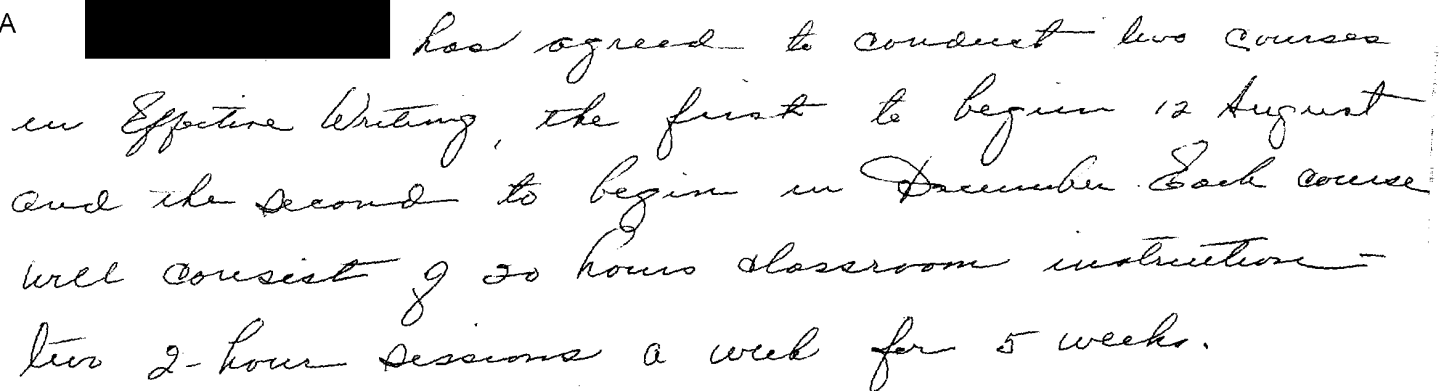 A has agreed to conduct two courses
in Effective Writing, the first to begin 12 August
and the second to begin in December. Each course
will consist of 20 hours classroom instruction -
two 2-hour sessions a week for 5 weeks.